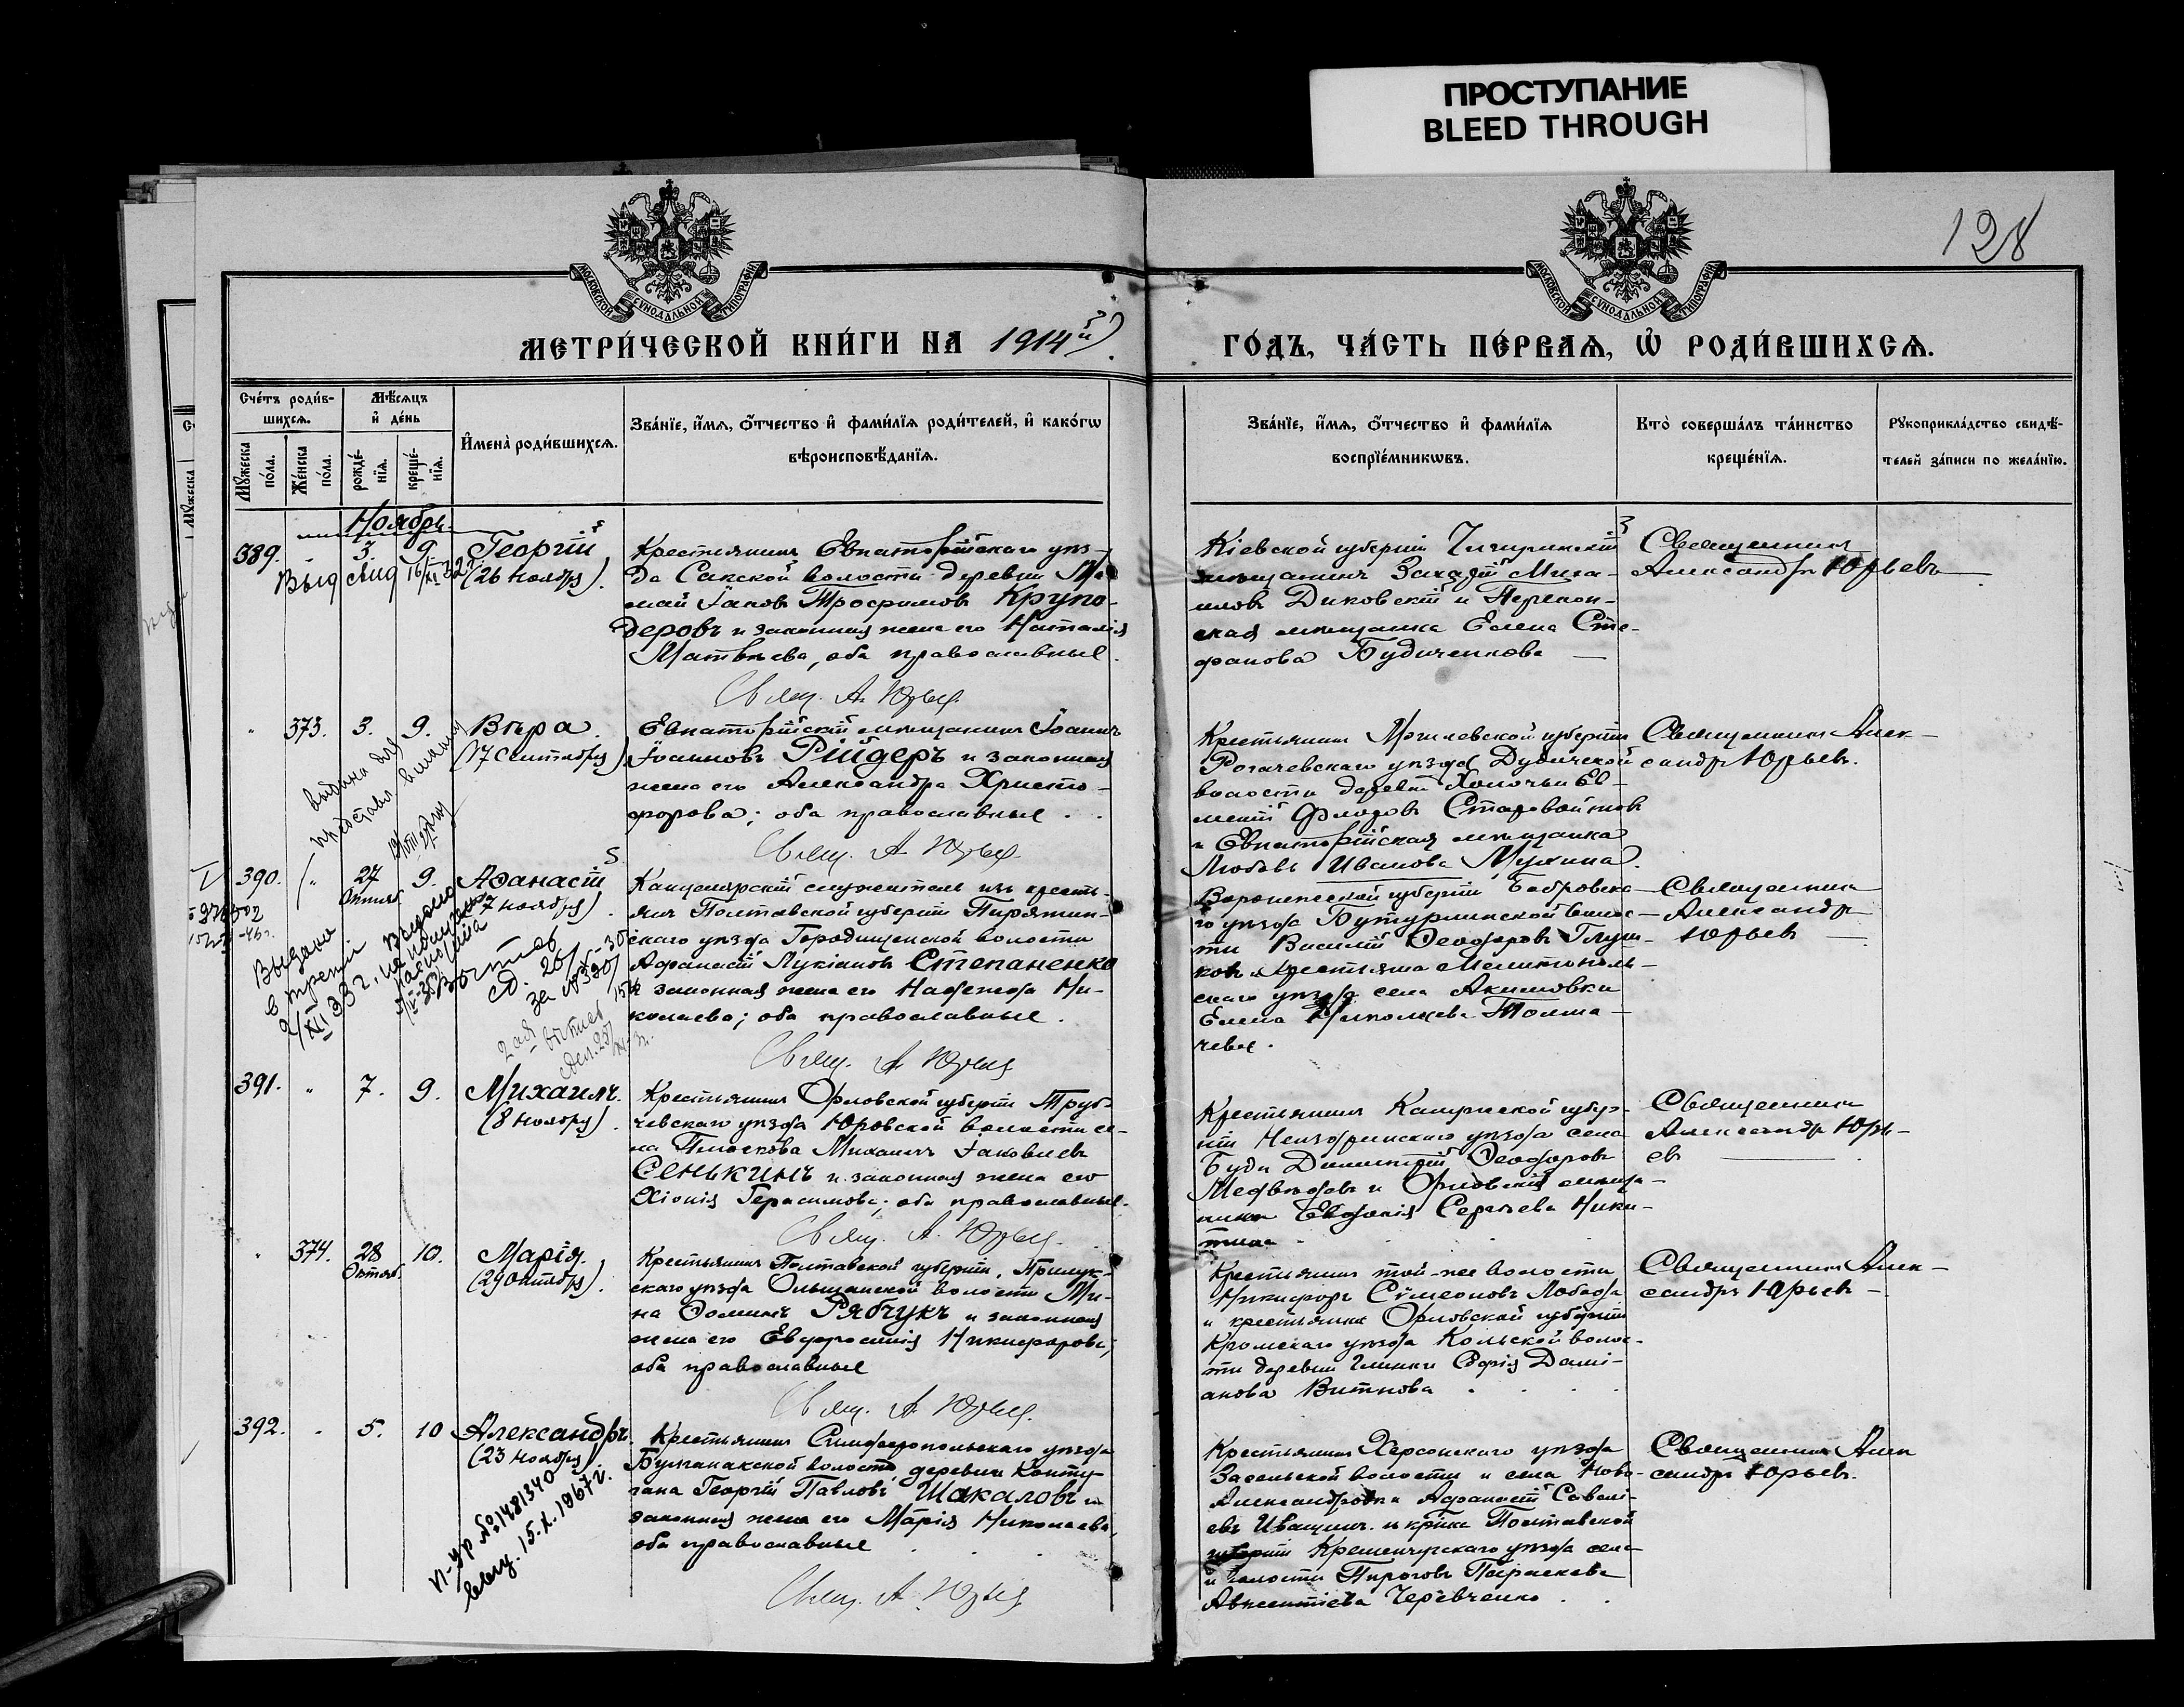 ПРОСТУПАНИЕ
BLEED THROUGH
128
МОСКОВСКОЙ СѴНОДАЛЬНОЙ ТИПОГРАФІИ
МОСКОВСКОЙ СѴНОДАЛЬНОЙ ТИПОГРАФІИ
МЕТРИ́ЧЕСКОЙ КНИ́ГИ НА 1914й
ГО́ДЪ, ЧА́СТЬ ПЕ́РВАѦ, Ѡ҆ РОДИ́ВШИХСѦ.
Сче́тъ роди́в-
шихсѧ.
Мѣ́сѧцъ
и҆ де́нь
Мꙋ́жеска
по́ла.
Же́нска
по́ла.
рожде́-
нїѧ.
креще́-
нїѧ.
И҆мена̀ роди́вшихсѧ.
Зва́нїе, и҆́мѧ, ѻ҆́тчество и҆ фами́лїѧ роди́телей, и҆ како́гѡ
вѣроисповѣ́данїѧ.
Зва́нїе, и҆́мѧ, ѻ҆́тчество и҆ фами́лїѧ
воспрїе́мникѡвъ.
Кто̀ соверша́лъ та́инство
креще́нїѧ.
Рꙋкоприкла́дство свидѣ́-
телей за́писи по жела́нїю.
Ноябрь.
389. 3. 9. Георгій
(26 ноября).
Крестьянинъ Евпаторійскаго уѣз-
да Сакской волости деревни
Іаковъ Трофимовъ Крупо-
деровъ и законная жена его Наталія
Матвѣева, оба православные.
Свящ. А. Юрьев
Кіевской губерніи Чигиринскій
мѣщанинъ Захарій Миха-
иловъ Диковскій и Перекоп-
ская мѣщанка Елена Сте-
фанова Будиченкова
Священникъ
Александръ Юрьевъ
373. 3. 9. Вѣра.
(17 Сентября)
Евпаторійскій мѣщанинъ Іоаннъ
Іоанновъ Рійдеръ и законная
жена его Александра Христо-
форова; оба православные.
Свящ. А. Юрьев
Крестьянинъ Могилевской губерніи
Рогачевскаго уѣзда Дудичской
волости деревни Холочьи Ев-
менiй Старовойтовъ
и Евпаторійская мѣщанка
Любовь Иванова
Священникъ Алек-
сандръ Юрьевъ.
390. 27 Октяб. 9. Аѳанасій
(7 ноября)
Канцелярскій служитель изъ кресть-
янъ Полтавской губерніи Пирятин-
скаго уѣзда Городищенской волости
Афанасій Лукіановъ Степаненко
и законная жена его Надежда Ни-
колаева; оба православные.
Свящ. А Юрьев
Воронежской губерніи Бобровска-
го уѣзда Бутурлинской волос-
ти Василій Ѳеодоровъ Глуш-
ковъ и крестьянка Мелитополь-
скаго уѣзда села Акимовки
Елена Николаева Толма-
чева.
Священникъ
Александръ
Юрьевъ
Выдано
391. 7. 9. Михаилъ.
(8 ноября).
Крестьянинъ Орловской губерніи Труб-
чевскаго уѣзда Юровской волости се-
ла Плюскова Михаилъ Іаковлевъ
Сенькинъ и законная жена его
Хіонія Герасимова; оба православные.
Свящ. А. Юрьев
Крестьянинъ Калужской губер-
ніи Жиздринскаго уѣзда села
Буди Димитрій Ѳеодоровъ
Медвѣдевъ и Орловская мѣща-
нка Евдокія Сергѣева Ники-
тина
Священникъ
Александръ Юрь-
евъ
374. 28 Октяб. 10. Марія.
(29 Октября).
Крестьянинъ Полтавской губерніи, Прилук-
скаго уѣзда Ольшанской волости Ми-
на Ѳоминъ Рябчукъ и законная
жена его Евфросинія Никифорова;
оба православные
Свящ. А. Юрьев.
Крестьянинъ той-же волости
Никифоръ Симеоновъ Лобода
и крестьянка Орловской губерніи
Кромскаго уѣзда Кольской волос-
ти деревни Глинки Софія Дамі-
анова Витнова
Священникъ Алек-
сандръ Юрьевъ
392. 5. 10 Александръ.
(23 ноября)
Крестьянинъ Симферопольскаго уѣзда
Булганакской волости деревни Конту-
гана Георгій Павловъ Шакаловъ и
законная жена его Марія Николаева,
оба православные
Свящ. А. Юрьев
Крестьянинъ Херсонскаго уѣзда
Засельской волости и села Ново-
Александровки Афанасій Савелі-
евъ Иващенк. и кр-ка Полтавской
губерніи Кременчугскаго уѣзда села
и волости Пироговъ Параскева
Авксентіева Черевченко
Священникъ Алек
сандръ Юрьевъ.
п-ур № 1481340
выд. 15.X.1967г.